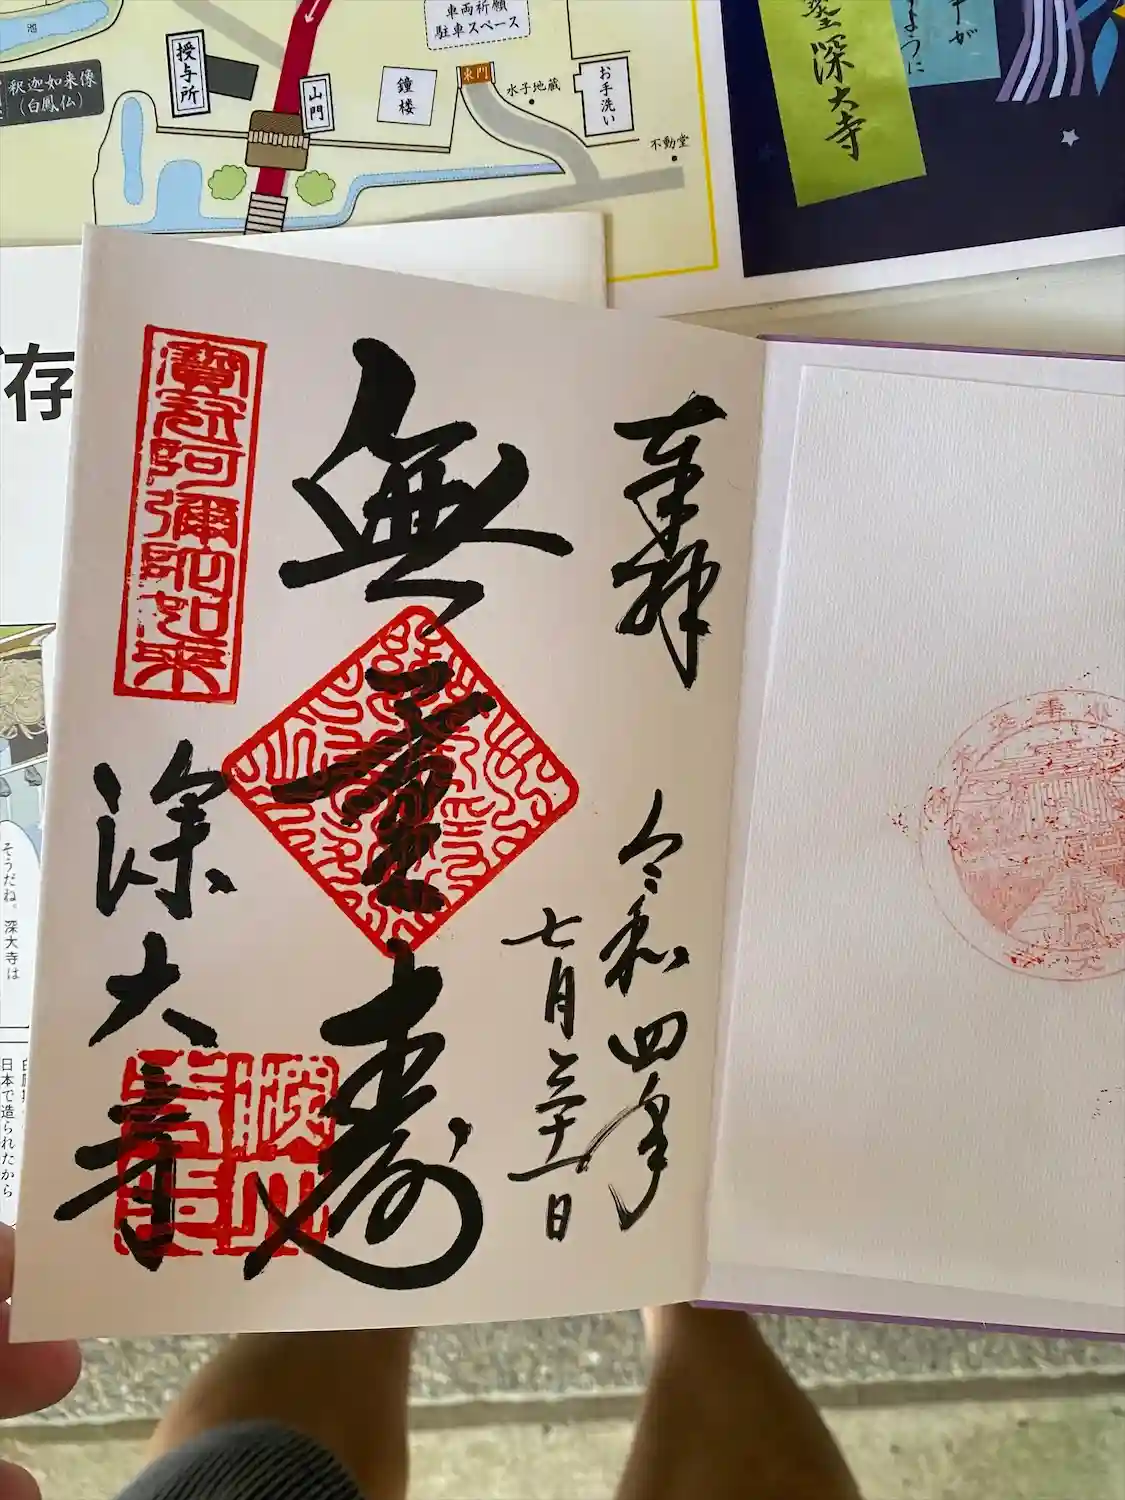 車両祈願
駐車スペース
池
授与所
釈迦如来像
（白鳳仏）
山門
鐘楼
東門
水子地蔵
お手洗い
不動堂
深大寺
ように
存
奉拝
令和四年
七月三十一日
無量寿
寳冠阿彌陀如来
深大寺
そうだね。深大寺は
日本で造られたから